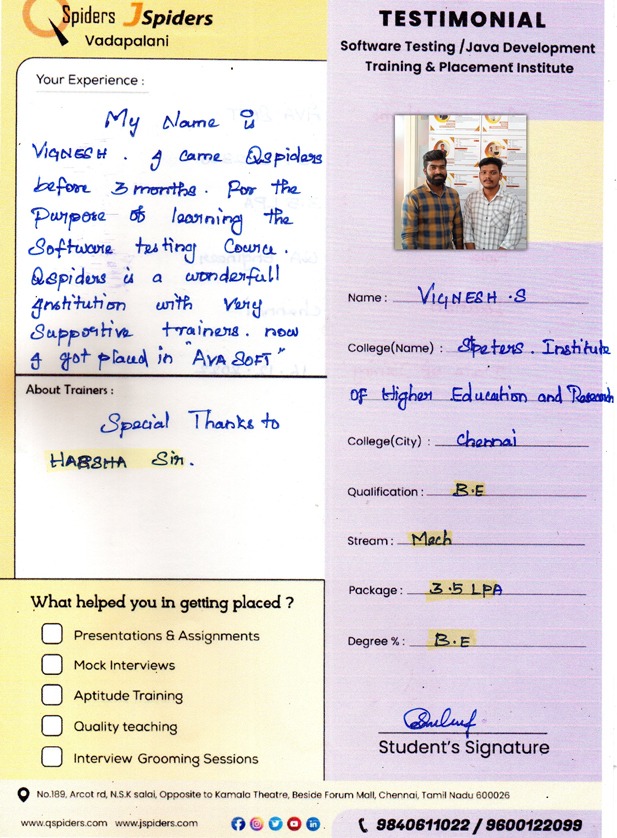 QSpiders JSpiders
Vadapalani
Your Experience :
My Name is
VIGNESH . I came Qspiders
before 3 months . For the
Purpose of learning the
Software testing Cource .
Qspiders is a wonderfull
Institution with Very
Supportive trainers . now
I got placed in "AVA SOFT"
About Trainers :
Special Thanks to
HARSHA Sir .
What helped you in getting placed ?
Presentations & Assignments
Mock Interviews
Aptitude Training
Quality teaching
Interview Grooming Sessions
TESTIMONIAL
Software Testing /Java Development
Training & Placement Institute
Name : VIGNESH .S
College(Name) : St peters . Institute
of Higher Education and Research
College(City) : Chennai
Qualification : B.E
Stream : Mech
Package : 3.5 LPA
Degree % : B.E
Student's Signature
No.189, Arcot rd, N.S.K salai, Opposite to Kamala Theatre, Beside Forum Mall, Chennai, Tamil Nadu 600026
www.qspiders.com www.jspiders.com
9840611022 / 9600122099